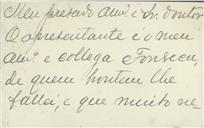 Meu presado Am.º e Sr. doutor
O apresentante é o meu
am.º e collega Fonseca,
de quem hontem lhe
fallei, e que muito